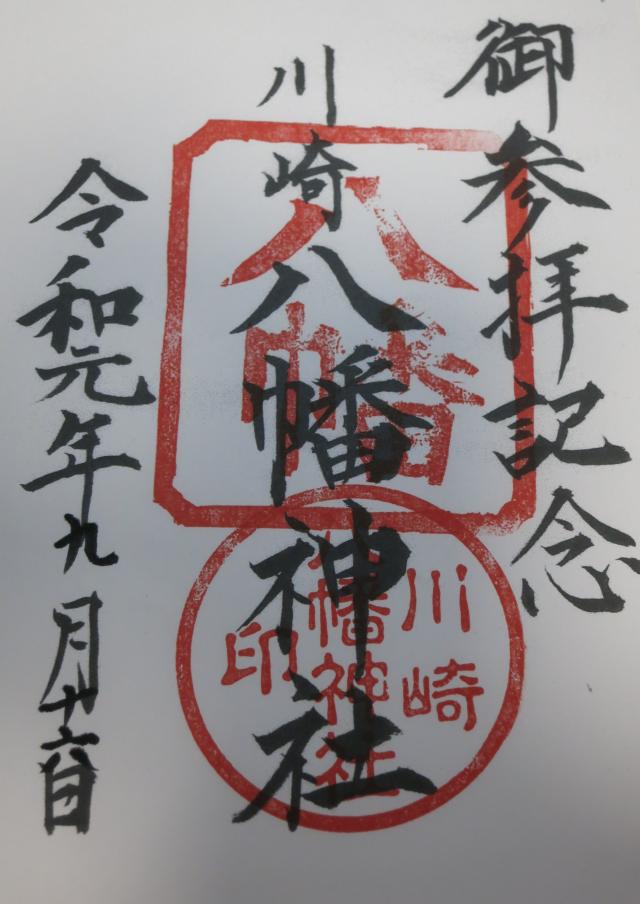 御参拝記念
川崎八幡神社
令和元年九月十六日
八幡
川崎
八幡神社
印